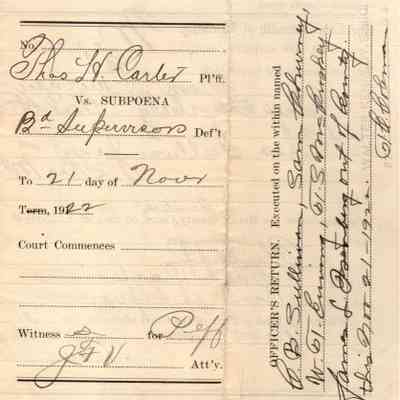 No.
Thos H. Carter Pl'ff.
Vs. SUBPOENA
Bd Supervisors Def't
To 21 day of Novr
Term, 1922
Court Commences
Witness for Plff
Att'y.
OFFICER'S RETURN. Executed on the within named
B. Sullivan, Sam
W. T.
James L. out of County
this Nov 21 1922.